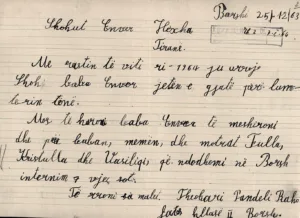 Borsh 25/12/63
Shokut Enver Hoxha
Tiranë.
Me rastin të vitit ri-1964 ju uroj
Shoku baba Enver jetën e gjatë për lum-
terin tonë.
Mos të harroj baba Enver të meshironi
dhe për baban, memen, dhe motrat Fulla,
Kristulla dhe Vasiliqi që ndodhemi në Borsh
internim 7 vjet sot.
Të rroni sa malet. Theohari Pandeli Rako
klasë II Borsh.